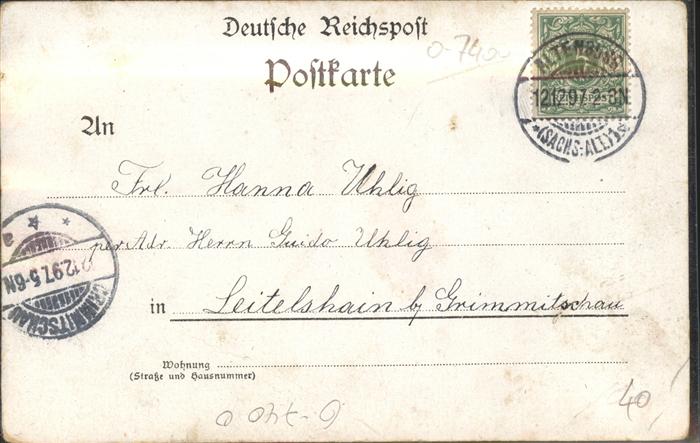 Deutsche Reichspost
Postkarte
ALTENBURG
12.12.97.2-3N
*(SACHS.-ALT.)1
An
Frl. Hanna Uhlig
per Adr. Herrn Guido Uhlig
in Leitelshain b/ Grimmitschau
12.97.5-6N
Wohnung
(Straße und Hausnummer)
40,